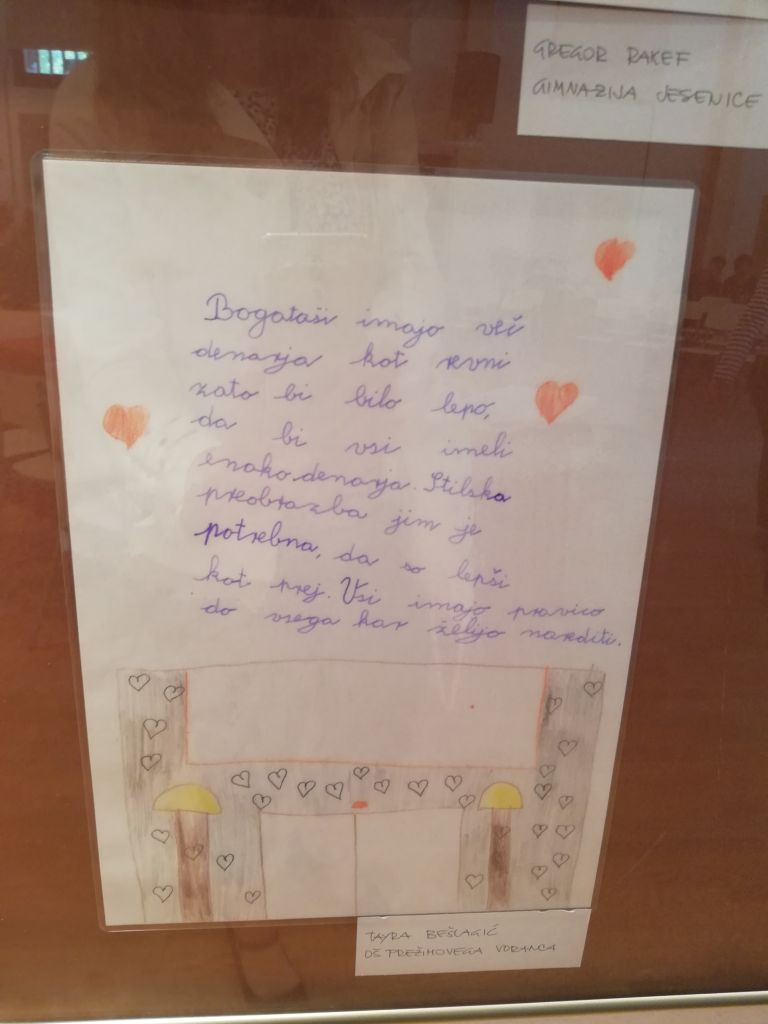 GREGOR RAKEF
GIMNAZIJA JESENICE
Bogataši imajo več
denarja kot revni
zato bi bilo lepo,
da bi vsi imeli
enako denarja. Stilska
preobrazba jim je
potrebna, da so lepši
kot prej. Vsi imajo pravico
do vsega kar želijo narditi.
TAYRA BEŠLAGIĆ
OŠ PREŽIHOVEGA VORANCA